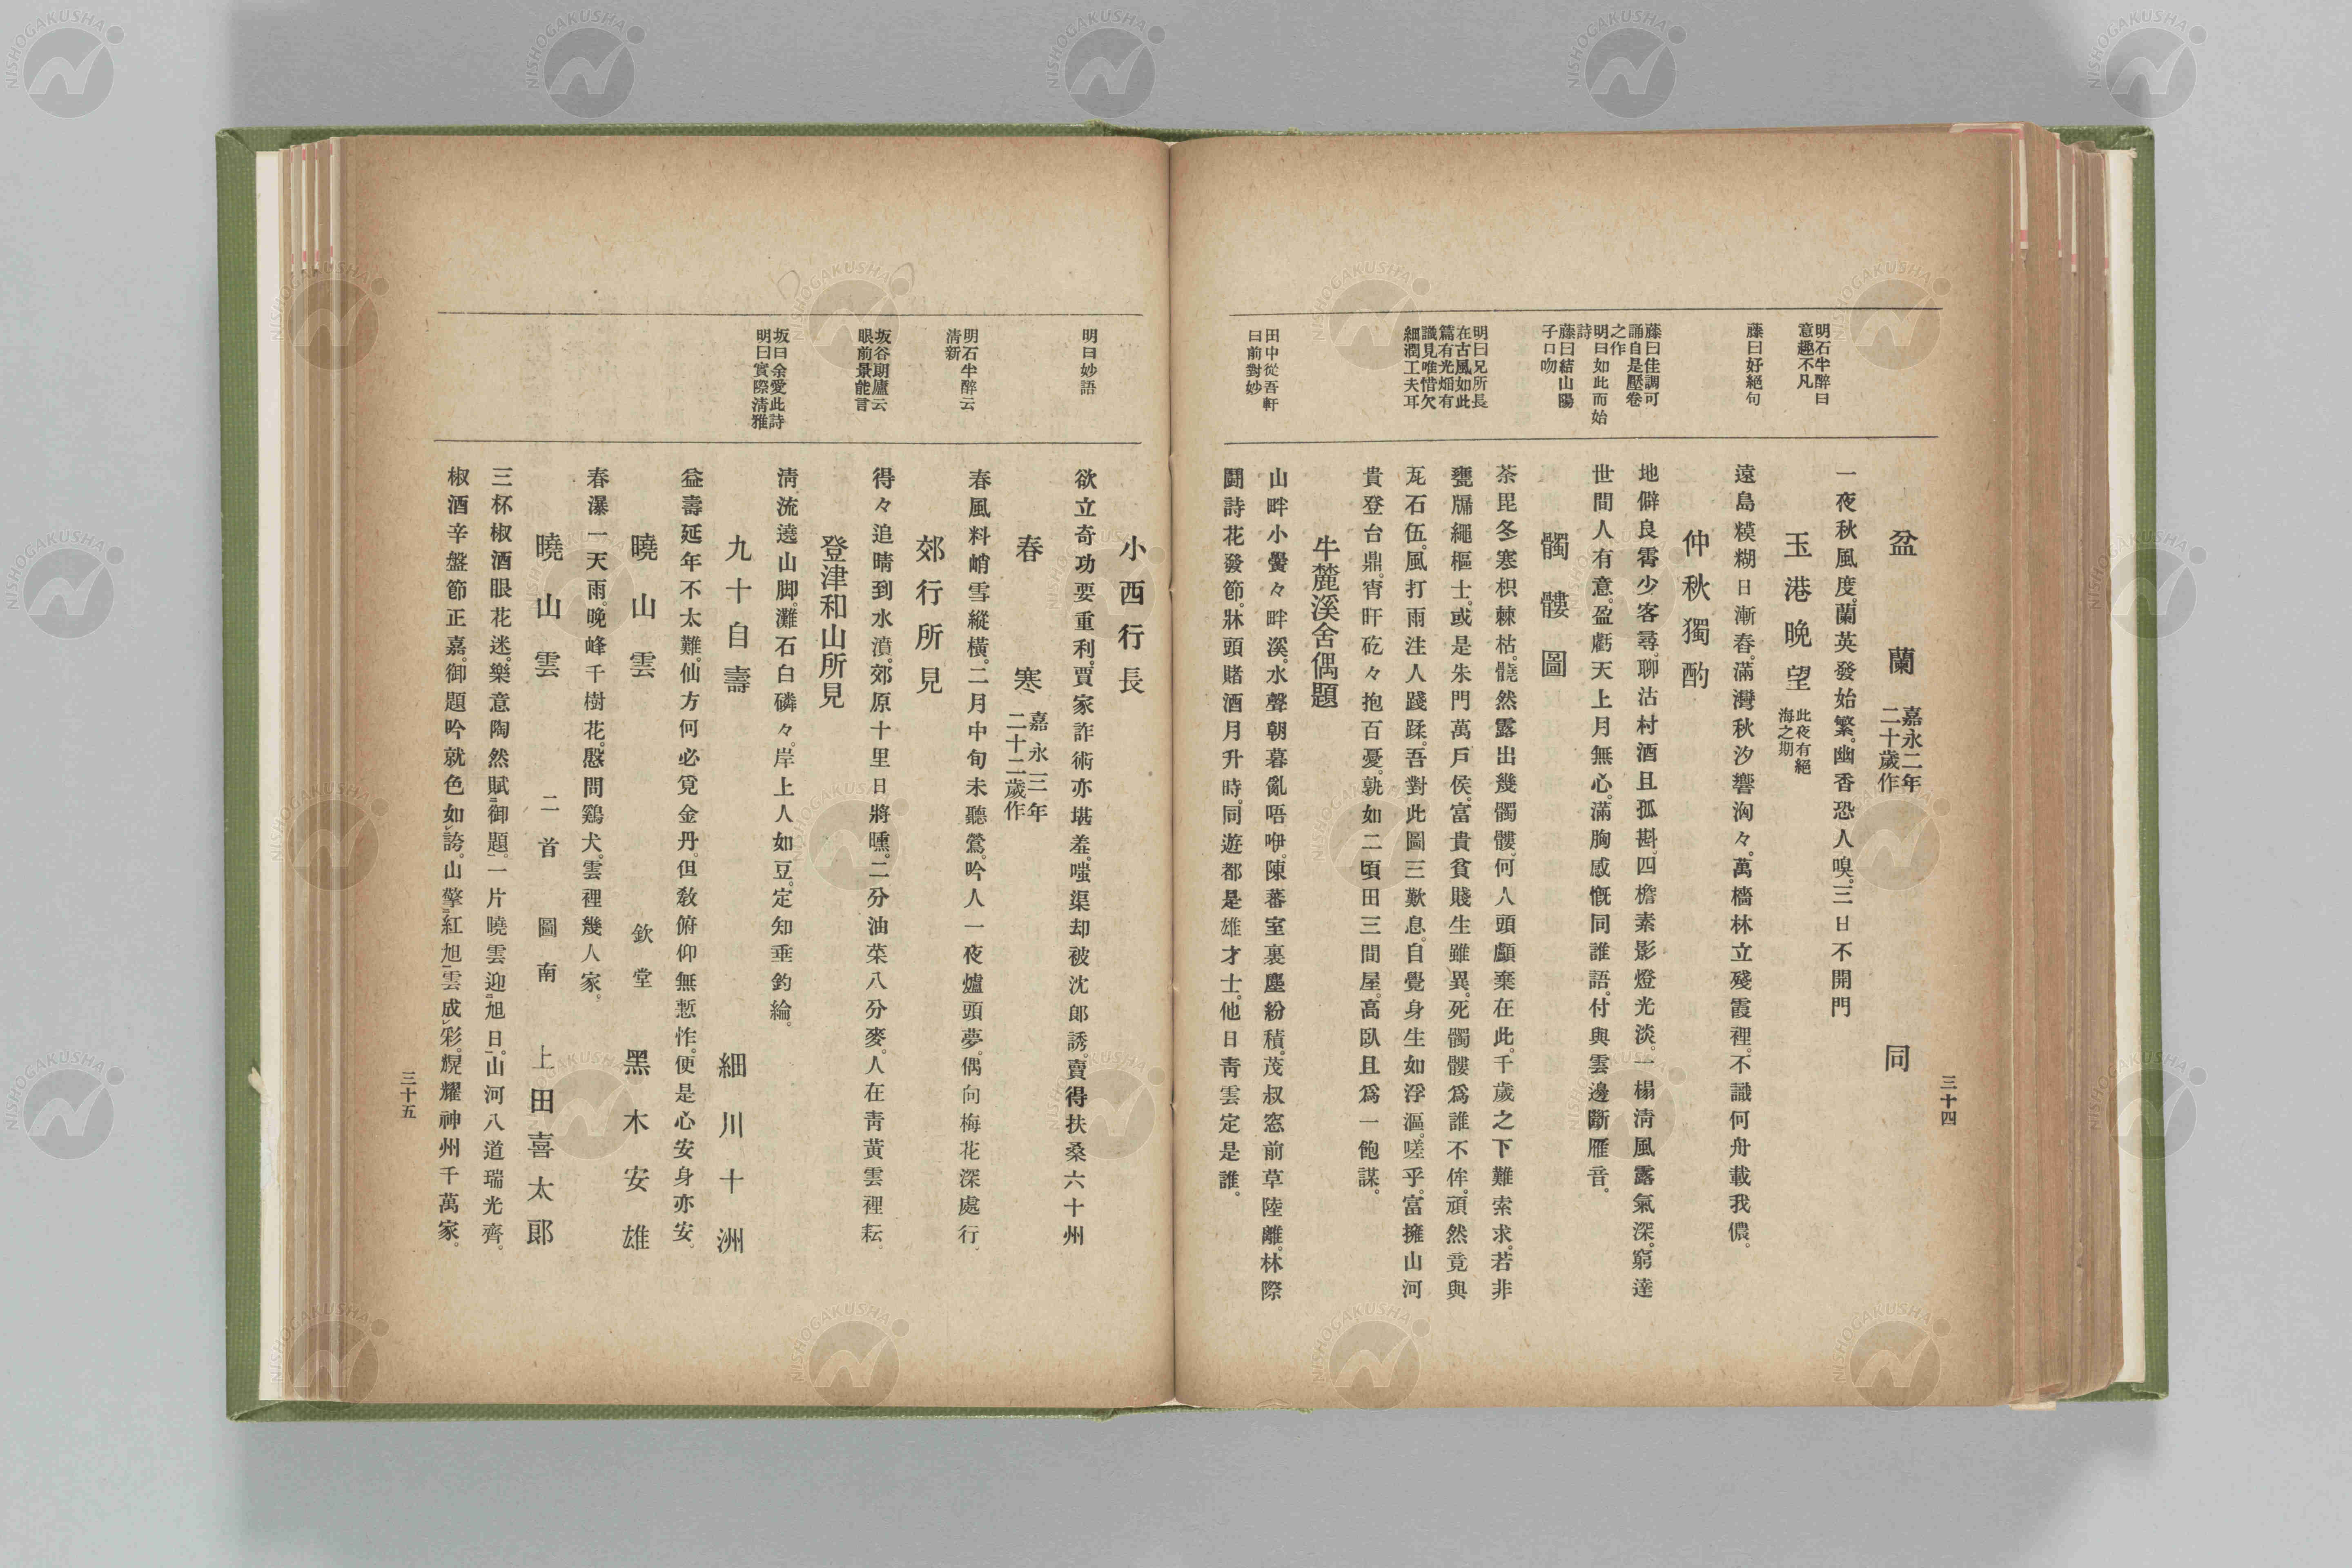 三十四
明石半醉曰
意趣不凡
藤曰好絕句
藤曰佳調可
誦自是壓卷
之作
明曰如此而始
詩
藤曰結山陽
子口吻
明曰兄所長
在古風如此
篇有光熖有
識見唯惜欠
細潤工夫耳
田中從吾軒
曰前對妙
盆蘭 嘉永二年
二十歲作 同
一夜秋風度。蘭英發始繁。幽香恐人嗅。三日不開門
玉港晚望 此夜有絕
海之期
遠島糢糊日漸舂。滿灣秋汐響洶々。萬檣林立殘霞裡。不識何舟載我儂。
仲秋獨酌
地僻良霄少客尋。聊沽村酒且孤斟。四檐素影燈光淡。一榻淸風露氣深。窮達
世間人有意。盈虧天上月無心。滿胸感慨同誰語。付與雲邊斷雁音。
髑髏圖
荼毘冬寒枳棘枯。髐然露出幾髑髏。何人頭顱棄在此。千歲之下難索求。若非
甕牖繩樞士。或是朱門萬戶侯。富貴貧賤生雖異。死髑髏爲誰不侔。頑然竟與
瓦石伍。風打雨注人踐蹂。吾對此圖三歎息。自覺身生如浮漚。嗟乎。富擁山河
貴登台鼎。宵旰矻々抱百憂。孰如二頃田三間屋。高臥且爲一飽謀。
牛麓溪舍偶題
山畔小黌々畔溪。水聲朝暮亂唔咿。陳蕃室裏塵紛積。茂叔窓前草陸離。林際
鬪詩花發節。牀頭賭酒月升時。同遊都是雄才士。他日靑雲定是誰。
明曰妙語
明石半醉云
清新
坂谷朗廬云
眼前景能言
坂曰余愛此詩
明曰實際清雅
小西行長
欲立奇功要重利。賈家詐術亦堪羞。嗤渠却被沈郎誘。賣得扶桑六十州
春寒 嘉永三年
二十二歲作
春風料峭雪縱橫。二月中旬未聽鶯。吟人一夜爐頭夢。偶向梅花深處行。
郊行所見
得々追晴到水濆。郊原十里日將曛。二分油菜八分麥。人在靑黃雲裡耘。
登津和山所見
淸流遶山脚。灘石白磷々。岸上人如豆。定知垂釣綸。
九十自壽 細川十洲
益壽延年不太難。仙方何必覓金丹。但敎俯仰無慙怍。便是心安身亦安。
曉山雲 欽堂 黑木安雄
春瀑一天雨。晚峰千樹花。慇問鷄犬。雲裡幾人家。
曉山雲 二首 圖南 上田喜太郞
三杯椒酒眼花迷。樂意陶然賦二御題一。一片曉雲迎二旭日一。山河八道瑞光齊。
椒酒辛盤節正嘉。御題吟就色如レ誇。山擎二紅旭一雲成レ彩。熀耀神州千萬家。
三十五